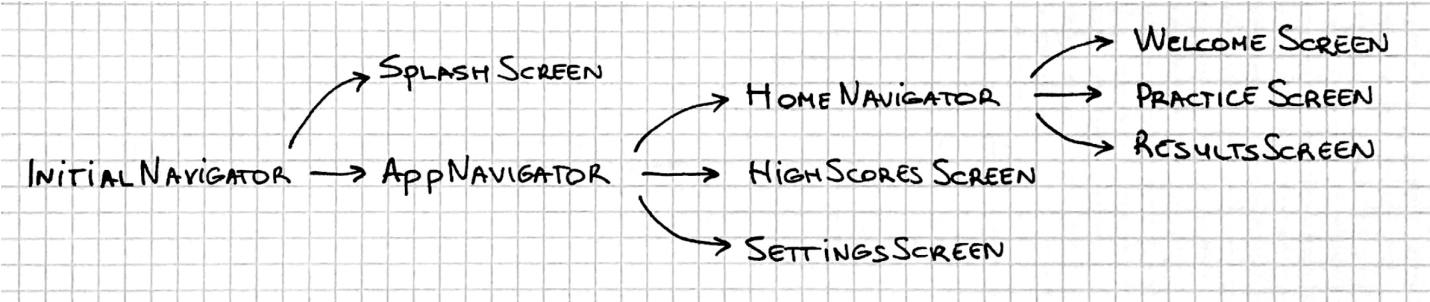 InitialNavigator
SplashScreen
AppNavigator
HomeNavigator
HighScoresScreen
SettingsScreen
WelcomeScreen
PracticeScreen
ResultsScreen